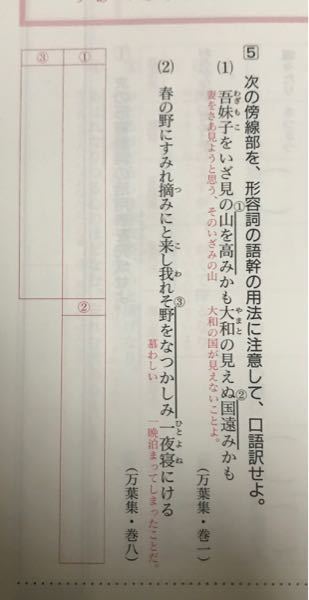 5 次の傍線部を、形容詞の語幹の用法に注意して、口語訳せよ。
(1) 吾妹子をいざ見の山を高みかも大和の見えぬ国遠みかも
わぎもこ
①
やまと
②
妻をさあ見ようと思う、そのいざみの山
大和の国が見えないことよ。
(万葉集・巻一)
(2) 春の野にすみれ摘みにと来し我れそ野をなつかしみ一夜寝にける
つ
こ
わ
③
ひとよね
慕わしい
一晩泊まってしまったことだ。
(万葉集・巻八)
①
②
③